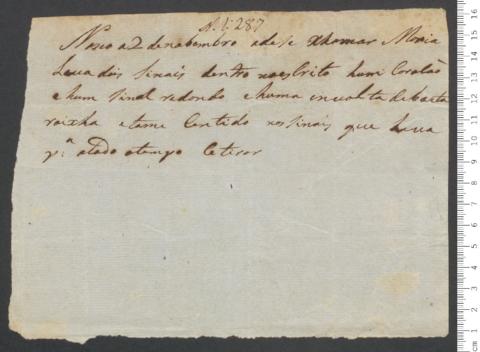 A. l: 287
Nasco a 2 de nobembro e dese thomas Maria
Leva dois sinais dentro no esbrito hum Coração
e hum sinal redondo e huma en volta de baeta
roixha e tame Centido nos sinais que Leva
p.ª atodo o tempo